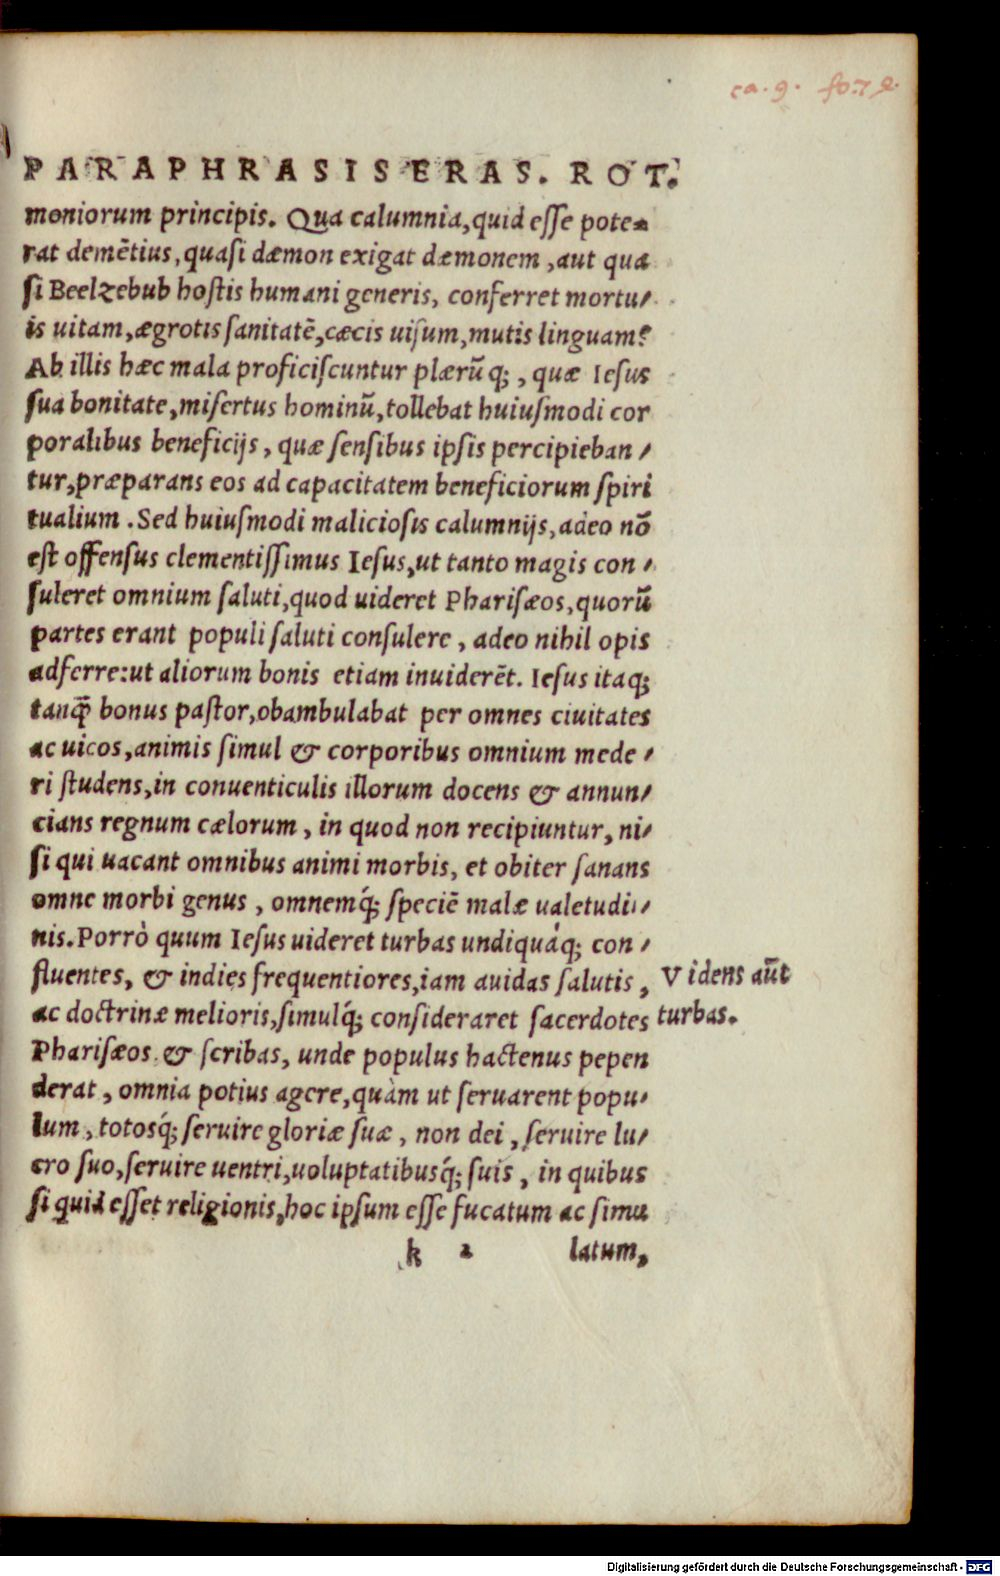 ca. 9. fo. 72.
PARAPHRASIS ERAS. ROT.
moniorum principis. Qua calumnia, quid eſſe pote-
rat demẽtius, quaſi dæmon exigat dæmonem, aut qua
ſi Beelzebub hoſtis humani generis, conferret mortu-
is uitam, ægrotis ſanitatẽ, cæcis uiſum, mutis linguam?
Ab illis hæc mala proficiſcuntur plærũq;, quæ Ieſus
ſua bonitate, miſertus hominũ, tollebat huiuſmodi cor
poralibus beneficijs, quæ ſenſibus ipſis percipieban-
tur, præparans eos ad capacitatem beneficiorum ſpiri
tualium. Sed huiuſmodi malicioſis calumnijs, adeo nõ
eſt offenſus clementiſſimus Ieſus, ut tanto magis con-
ſuleret omnium ſaluti, quod uideret Phariſæos, quorũ
partes erant populi ſaluti conſulere, adeo nihil opis
adferre: ut aliorum bonis etiam inuiderẽt. Ieſus itaq;
tanq̃ bonus paſtor, obambulabat per omnes ciuitates
ac uicos, animis ſimul & corporibus omnium mede-
ri ſtudens, in conuenticulis illorum docens & annun-
cians regnum cælorum, in quod non recipiuntur, ni-
ſi qui uacant omnibus animi morbis, et obiter ſanans
omne morbi genus, omnemq́; ſpeciẽ malæ ualetudi-
nis. Porrò quum Ieſus uideret turbas undiquáq; con-
fluentes, & indies frequentiores, iam auidas ſalutis,
Videns aũt
ac doctrinæ melioris, ſimulq́; conſideraret ſacerdotes
turbas.
Phariſæos & ſcribas, unde populus hactenus pepen
derat, omnia potius agere, quàm ut ſeruarent popu-
lum, totosq́; ſeruire gloriæ ſuæ, non dei, ſeruire lu-
cro ſuo, ſeruire uentri, uoluptatibusq́; ſuis, in quibus
ſi quid eſſet religionis, hoc ipſum eſſe fucatum ac ſimu
k 2 latum,
Digitalisierung gefördert durch die Deutsche Forschungsgemeinschaft - DFG